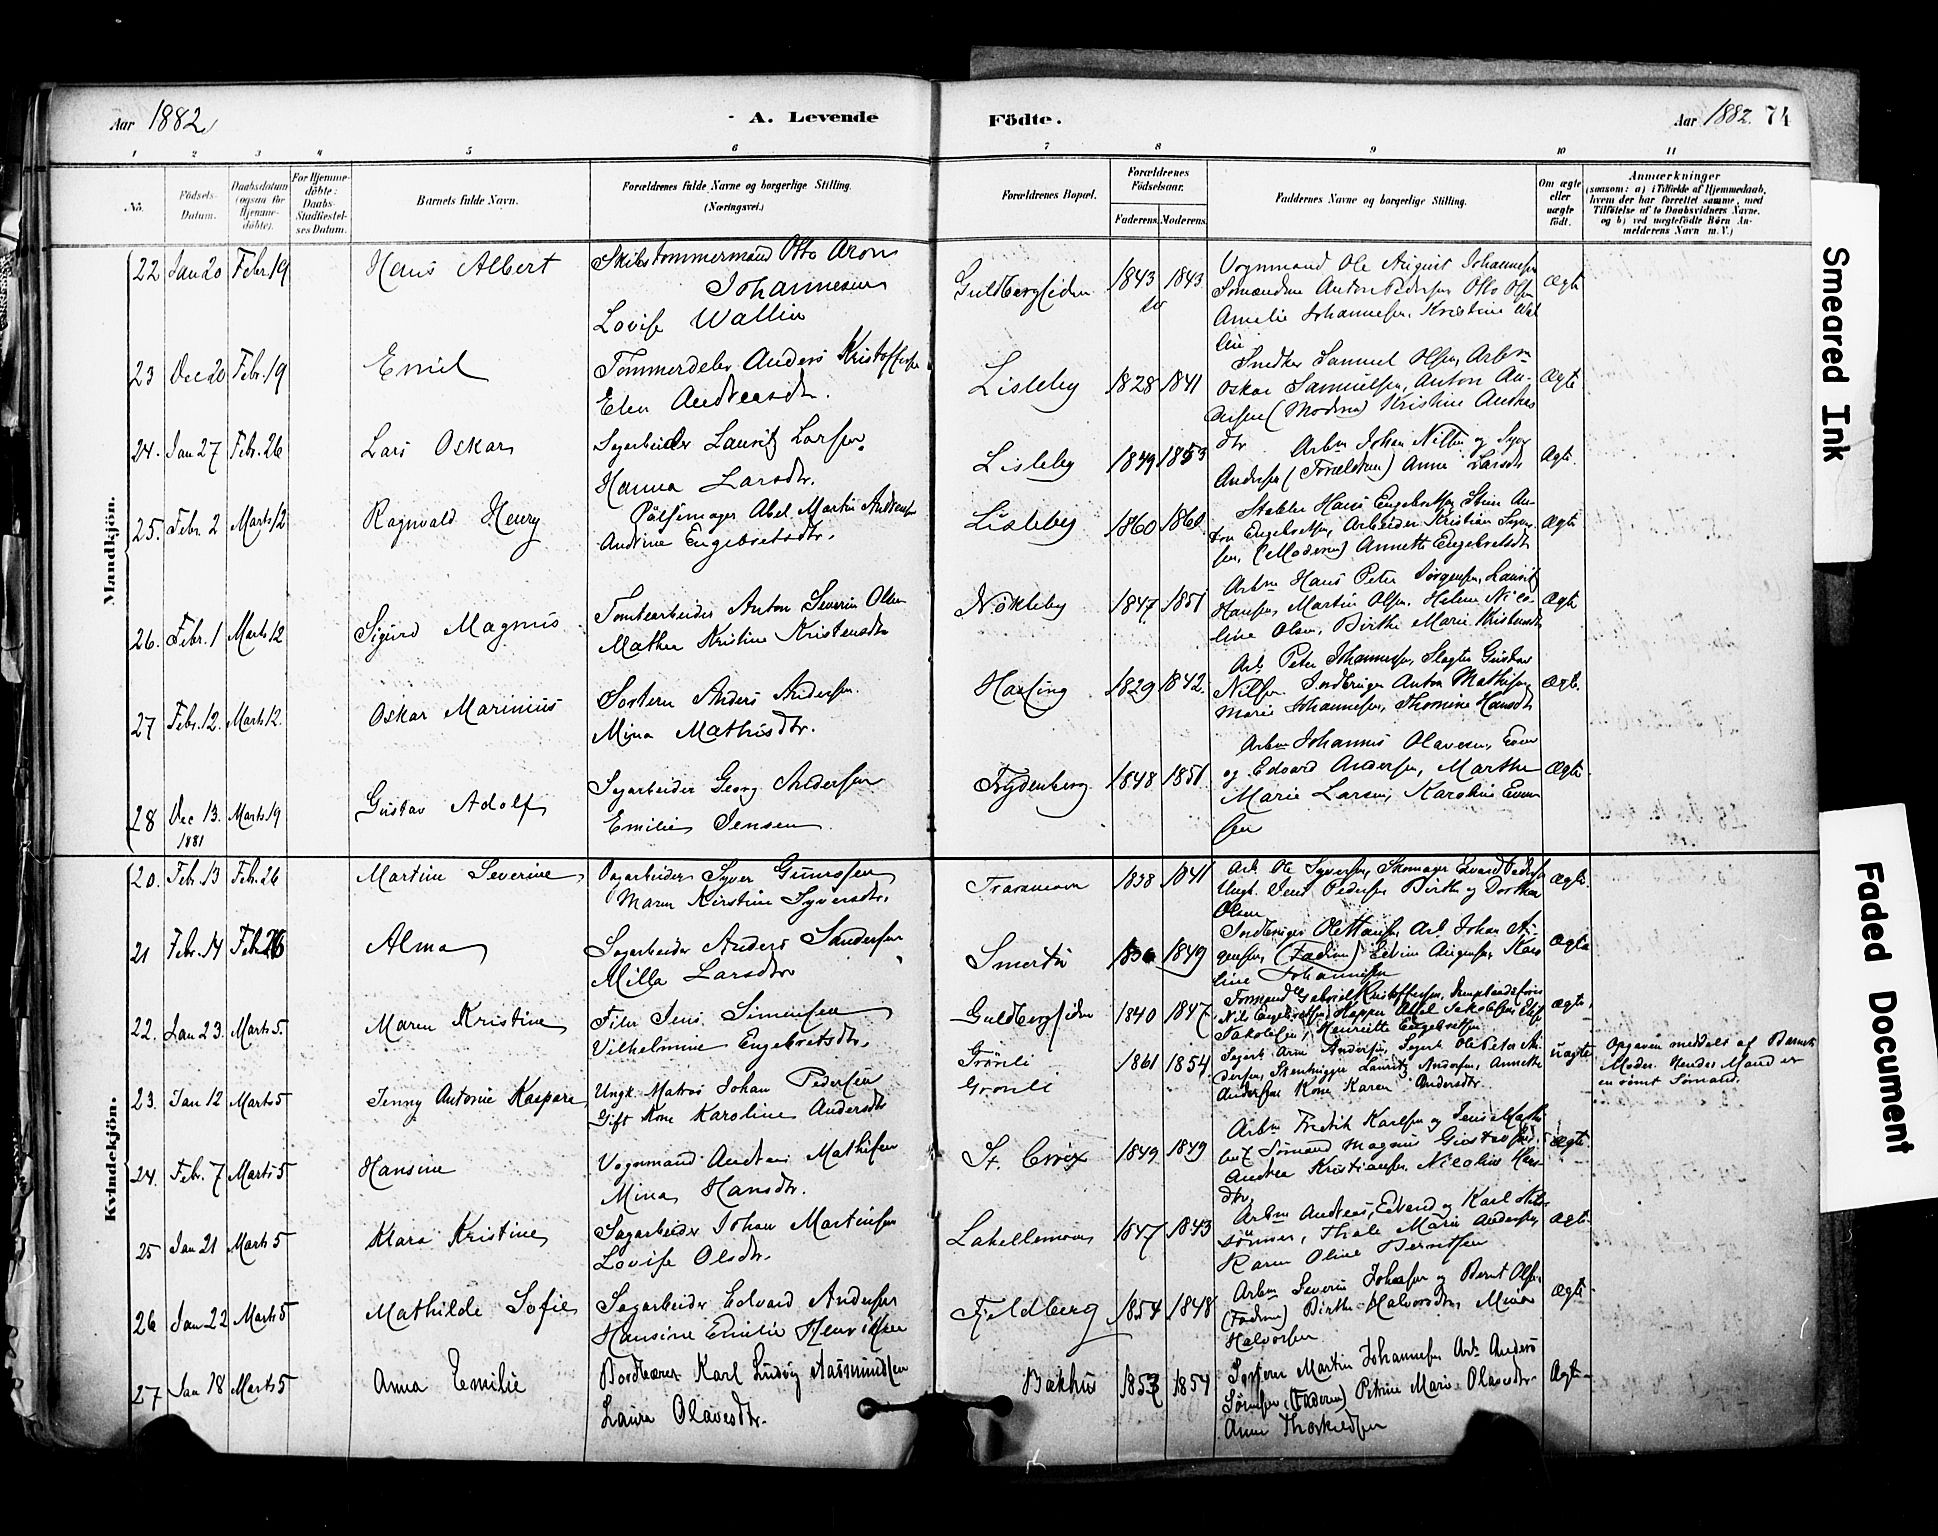 Aar 1882
A. Levende
Födte.
Aar 1882. 74
1 2 3 4 5 6 7 8 9 10 11
No.
Födsels-
Datum.
Daabsdatum
(ogsaa for
Hjemme-
döbte).
For Hjemme-
döbte:
Daabs-
Stadfæstel-
ses Datum.
Barnets fulde Navn.
Forældrenes fulde Navne og borgerlige Stilling.
(Næringsvei.)
Forældrenes Bopæl.
Forældrenes
Födselsaar.
Faderens. Moderens.
Faddernes Navne og borgerlige Stilling.
Om ægte
eller
uægte
födt.
Anmærkninger
(saasom: a) i Tilfælde af Hjemmedaab,
hvem der har forrettet samme, med
Tilföielse af to Daabsvidners Navne,
og b) ved uægtefödte Börn An-
melderens Navn m. V.)
Mandkjön.
22 Jan 20 Febr. 19 Hans Albert Skibstömmermand Otto Aron
Johannesen
Lovise Wallin
Guldbergsiden 1843 1843
Vognmand Ole August Johannesen
Sömændene Anton Pedersen Otto Olsen
Amelie Johannesen, Kristine Wal
lin
Ægte
23 Dec 20 Febr. 19 Emil Tömmerdeler Anders Kristoffersen
Elen Andreasdtr.
Lisleby 1828 1841
Snedker Samuel Olsen, Arbm
Oskar Samuelsen, Anton An-
dersen (Moderen) Kristine Andreas
dtr
Ægte
24. Jan 27 Febr. 26 Lars Oskar Sagarbeider Laurits Larsen
Hanna Larsdtr.
Lisleby 1849 1853
Arbm Johan Nilsen og Syver
Andersen (Forældrene) Anne Larsdtr
Ægte.
25. Febr. 2 Marts 12 Ragnvald Henry Pölsemager Abel Martin Andersen
Andrine Engebretsdtr.
Lisleby 1860 1860
Stabler Hans Engebretsen, Stine An-
Engebretsen, Arbeider Kristian Syver-
sen, (Moderen) Annette Engebretsdtr
Ægte
26. Febr. 1 Marts 12 Sigurd Magnus Tomtearbeider Anton Severin Olsen
Mathea Kristine Kristensdtr
Nökleby 1847 1851
Arbm Hans Peter Jörgensen, Laurits
Hansen, Martin Olsen, Helene Nico-
line Olsen, Birthe Marie Kristensdtr
Ægte
27 Febr. 12. Marts 12. Oskar Marinius Sorterer Anders Andersen
Mina Mathisdtr.
Hassing 1829 1842.
Arb. Peter Johannesen, Slagter Gustav
Nilsen Inderiger Anton Mathisen
Marie Johannesen, Thomine Hansdtr
Ægte.
28 Dec 13. 1881 Marts 19 Gustav Adolf Sagarbeider Georg Andersen
Emilie Jensen
Frydenberg 1848 1851
Arbm Johannes Olavesen, Even
og Edvard Andersen, Marthe
Marie Larsen, Karoline Even
sen
Ægte
Kvindekjön.
20. Febr. 13 Febr. 26 Martine Severine Sagarbeider Syver Gunnersen
Maren Kirstine Syversdtr.
1838 1841
Arb. Ole Syversen, Skomager Edvard Pedersen
Ungk. Jens Pedersen Birthe og Dorthea
Olsen
Ægte.
21 Febr. 14 Feb. 26 Alma Sagarbeider Anders Sandersen
Milla Larsdtr
Smertu 1849
Ole Hansen, Arb. Johan
(Faderen) Kar
line Johannesen
Ægte
22. Jan 23. Marts 5. Maren Kristine Filer Jens Simensen
Vilhelmine Engebretsdtr.
Guldbergsiden 1840 1847
Formand Gabriel Kristoffersen,
Nils Engebretsen,
Jakobsen, Henriette Engebretsen
ægte.
23. Jan 12 Marts 5 Jenny Antonie Kaspara Ungk. Matros Johan Pedersen
Gift Kone Karoline Andersdtr
Grönli
Grönli
1861 1854
Sagarb. Arne Andersen, Sagarb. Ole Peter An
dersen, Stenhugger Laurits Andersen, Annette
Andersen Kone Karen Andersdtr.
uægte
Opgaven meddelt af Barnets
Moder. Hendes Mand er
en römt Sömand.
24. Febr. 7 Marts 5 Hansine Vognmand Andreas Mathisen
Mina Hansdtr.
St. Croix 1849 1849
Arbm Fredrik Karlsen og Jens Math
Sömand Magnus Gustavsen,
Andrea Kristiansen, Nicoline Hans-
dtr,
Ægte
25 Jan 21 Marts 5 Klara Kristine Sagarbeider Johan Martinsen
Lovise Olsdtr.
Lakellemoen 1847 1843
Arbm Andreas, Edvard og Karl Nils-
sönner, Thale Marie Andersen,
Karen Oline Berntsen
Ægt.
26 Jan 22 Marts 5 Mathilde Sofie Sagarbeider Edvard Andersen
Hansine Emilie Henriksen
Fjeldberg 1854 1848
Arbm Severin Johnsen og Bernt Olsen
(Faderen) Birthe Halvorsdtr, Mina
Halvorsen
Ægte
27 Jan 18 Marts 5 Anna Emilie Bordbærer Karl Ludvig Aasmundsen
Laura Olavesdtr.
Bakhus 1853 1854
Sorterer Martin Johannesen Arb. Anders
Sörensen, (Faderen) Petrine Marie Olavesdtr.
Anne Thorkildsen
Ægte
Smeared Ink
Faded Document